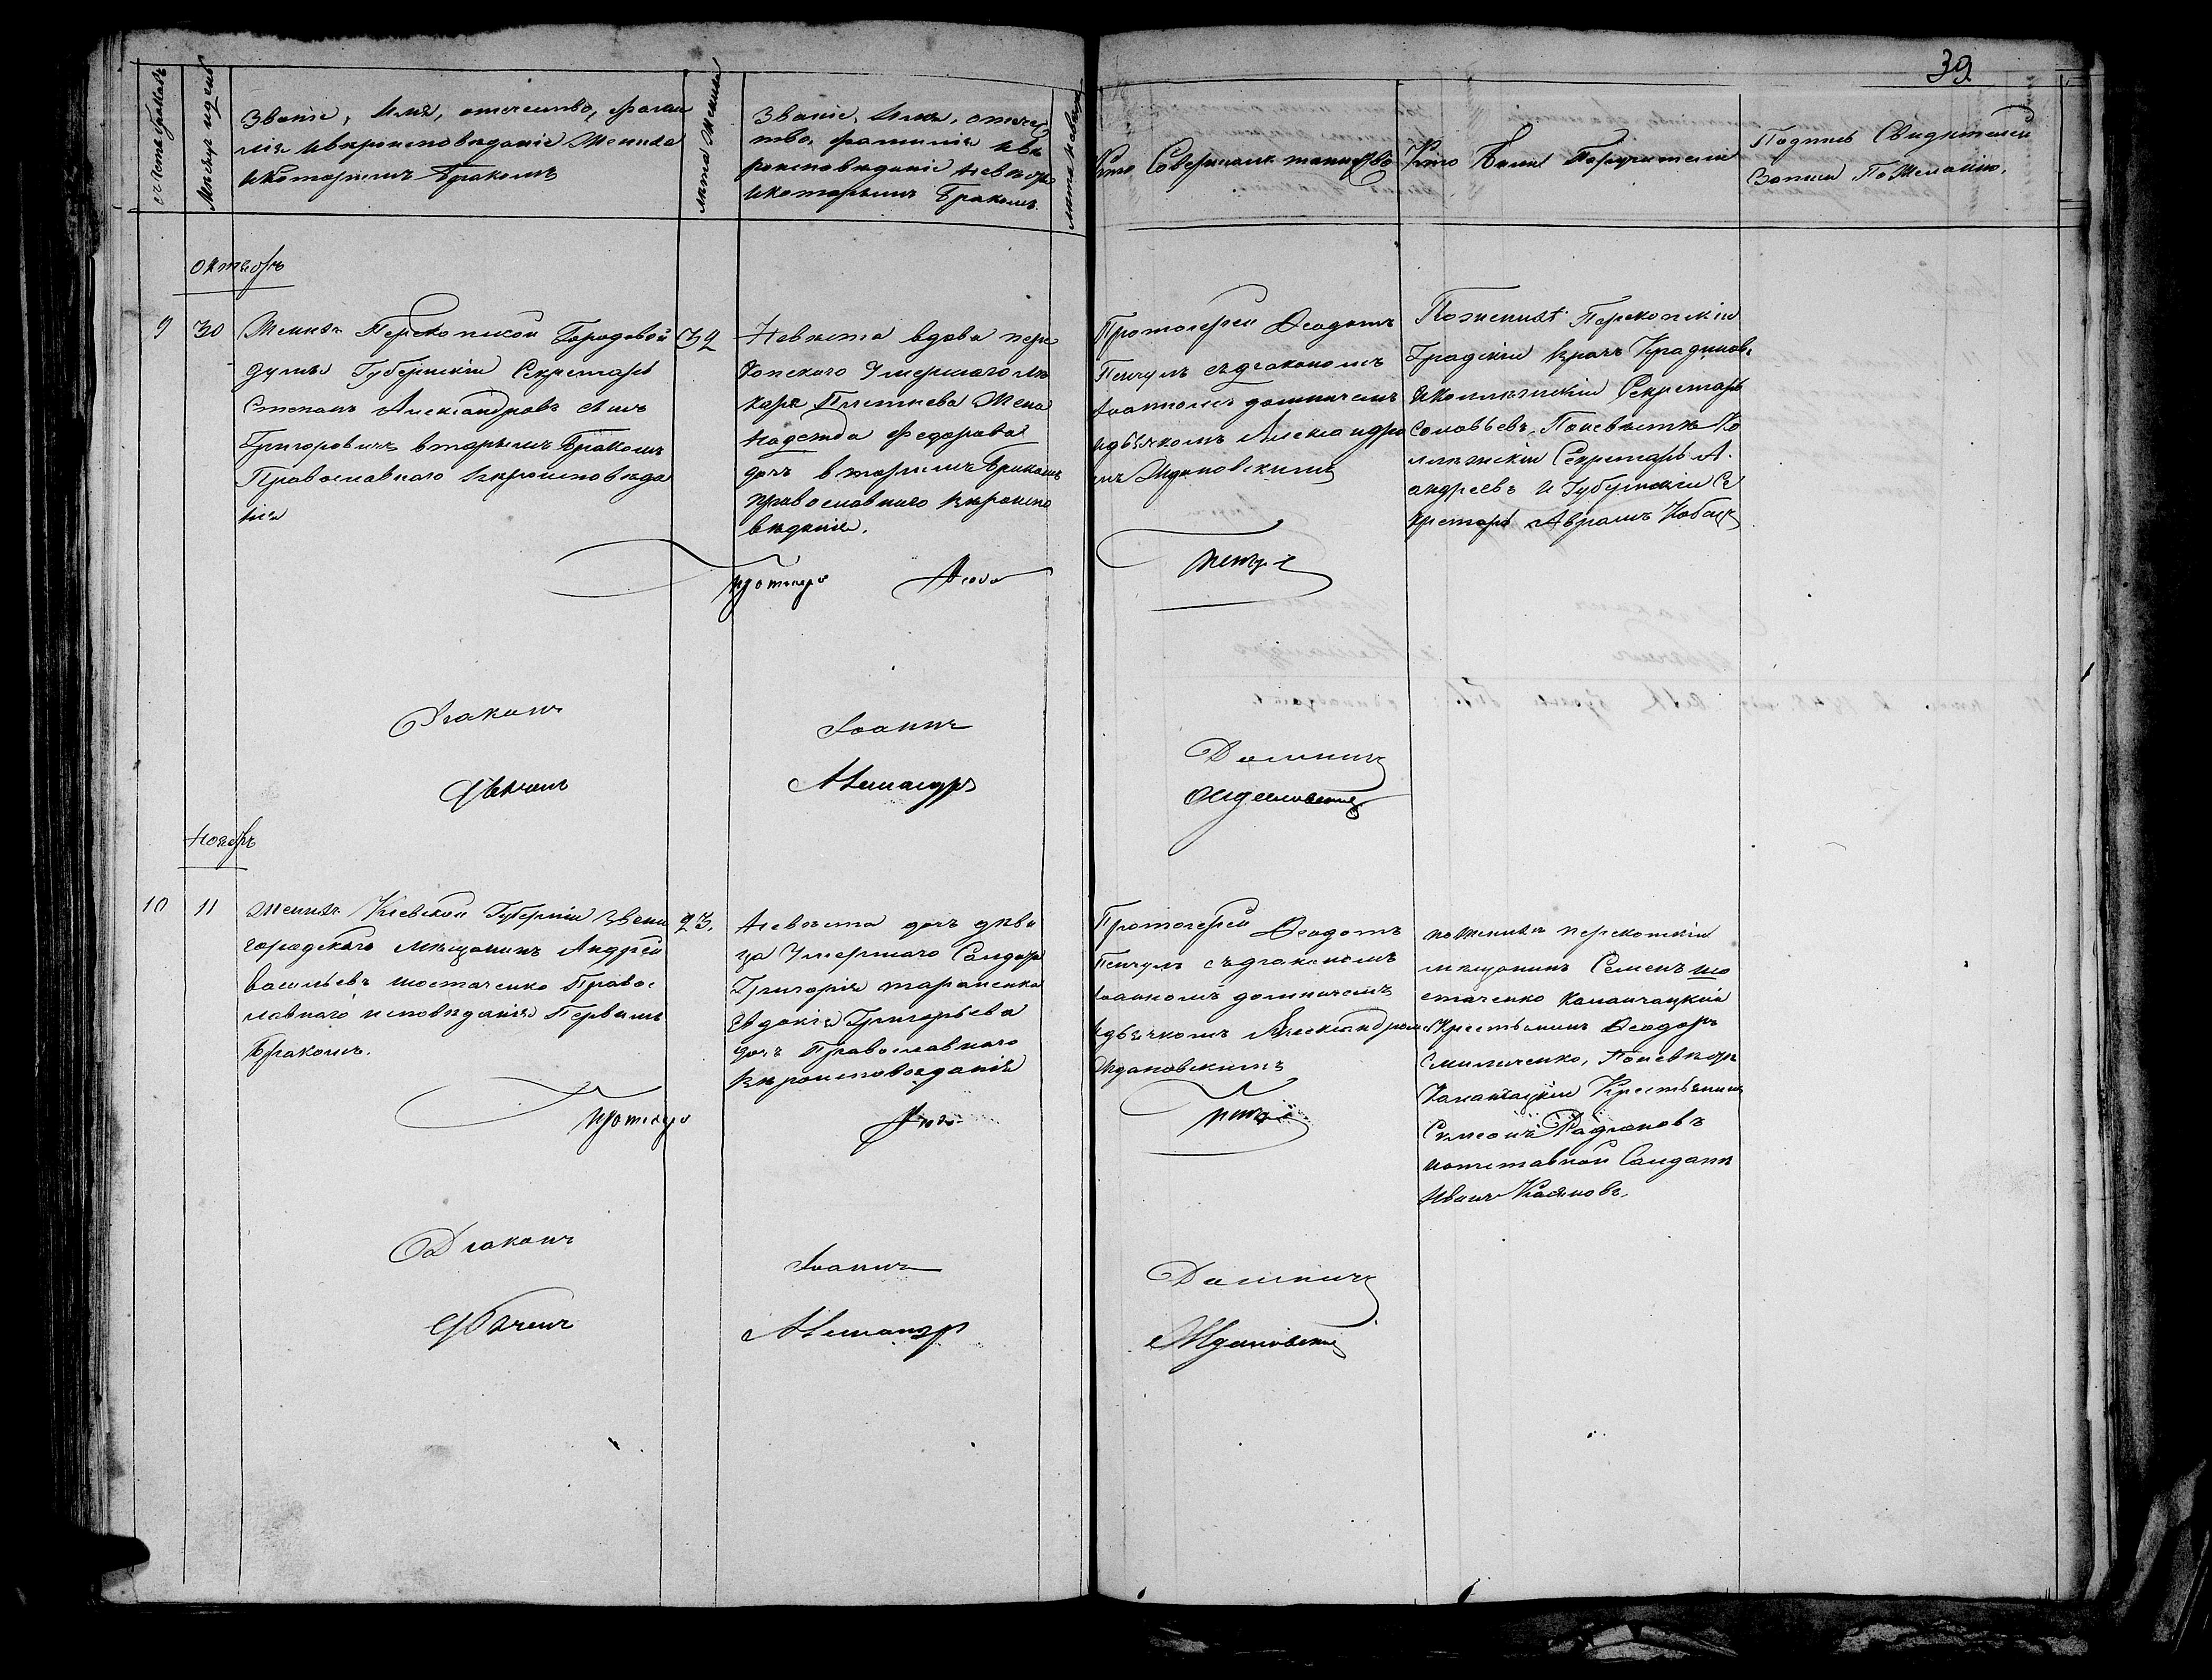 39
счетъ браковъ
Месяцъ и день
Званіе, Имя, отечество, фами
лія и вероисповеданіе Жениха
и которымъ бракомъ
лета Жениха
Званіе, Имя, отечес
тво, фамилія и ве
роисповеданіе невесты
и которымъ бракомъ.
лета невесты
Кто Совершалъ таинство
Кто были Поручители
Подпись Свидетелей
Записи По Желанію.
октябрь
9
30
Женихъ Перекопской Городовой
Думы Губернскій Секретарь
Степанъ Александровъ сынъ
Григоровичъ вторымъ бракомъ
Православнаго вероисповеда
нія
32
Невеста вдова пере
копскаго Умершаго ле
каря Плетнева Жена
Надежда Федорова
дочь вторымъ бракомъ
православнаго вероиспо
веданія.
Протоіерей Феодотъ
Пенчулъ съ діакономъ
Іоанномъ
и дьячкомъ Александро
мъ Ждановскимъ
По женихе: Перекопскій
Градскій врачъ
Секретарь
Соловьевъ, По невесте Ко
лежскій Секретарь А.
андреевъ и Губернскій Се
кретарь Аврамъ
протоіерей Феодо
Пенчул
Діаконъ Іоаннъ
Дьячекъ Александръ Ждановскій
Ноябрь
10
11
Женихъ Кіевской Губерніи Звени
городскаго мещанинъ Андрей
Васильевъ шостаченко Правос
лавнаго исповеданія Первымъ
бракомъ.
23.
Невеста дочь деви
ца Умершаго Солдата
Григорія тараненка
Евдокія Григорьева
дочь Православнаго
вероисповеданія
Протоіерей Феодотъ
Пенчулъ съ діакономъ
Іоанномъ
и дьячкомъ Александромъ
Ждановскимъ
по женихе перекопскій
мещанинъ Семенъ шо
стаченко каланчацкій
Крестьянинъ Феодоръ
По невесте
Каланчацкій Крестьянинъ
Симеонъ Радіоновъ
и отставной Солдатъ
Иванъ
протоіерей Феодо
Пенчул
Діаконъ Іоаннъ
Дьячекъ Александръ Ждановскій